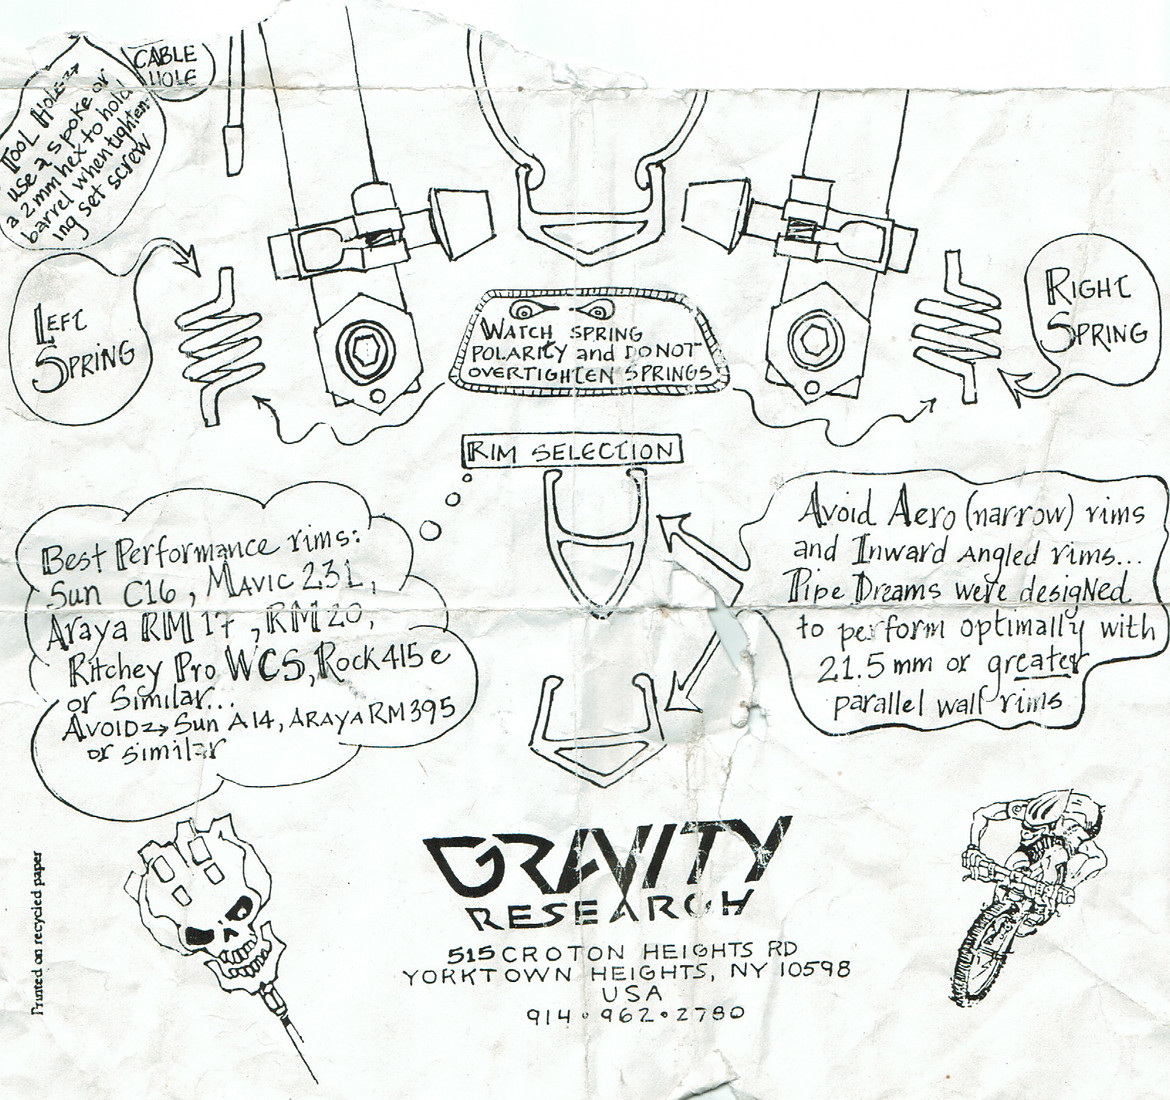 CABLE
HOLE
Tool Hole→
use a spoke or
a 2mm hex to hold
barrel when tighten-
ing set screw
LEFT
SPRING
WATCH SPRING
POLARITY and DO NOT
OVERTIGHTEN SPRINGS
RIGHT
SPRING
RIM SELECTION
Best Performance rims:
Sun C16, MAVIC 231,
Araya RM 17, RM 20,
Ritchey Pro WCS, Rock 415 e
or Similar...
AVOID→ Sun A14, ARAYA RM395
or similar
Avoid Aero (narrow) rims
and Inward Angled rims...
Pipe Dreams were desigNed
to perform optimally with
21.5 mm or greater
parallel wall rims
GRAVITY
RESEARCH
515 CROTON HEIGHTS RD
YORKTOWN HEIGHTS, NY 10598
USA
914•962•2780
Printed on recycled paper